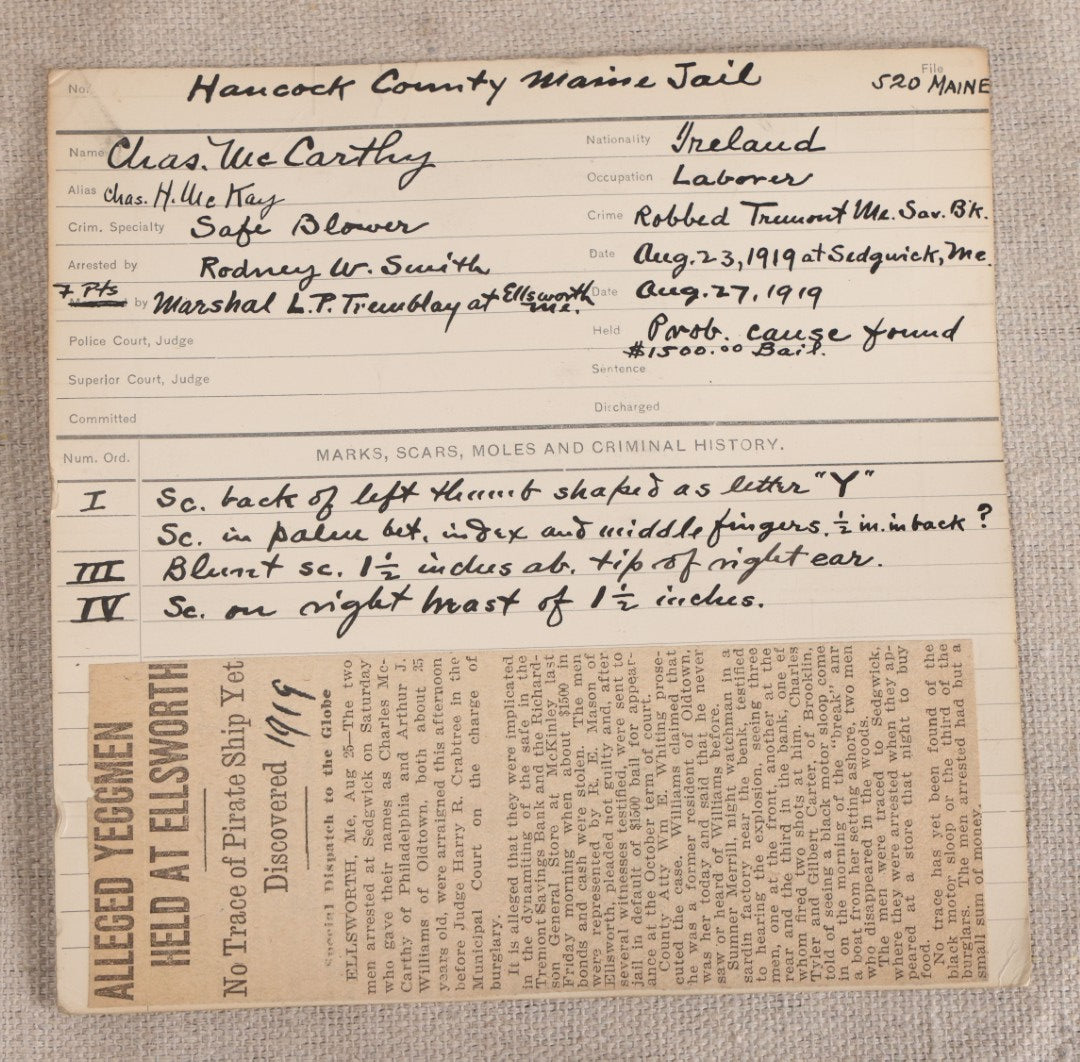 No. Hancock County Maine Jail File 520 MAINE
Name Chas. McCarthy Nationality Ireland
Alias Chas. H. McKay Occupation Laborer
Crim. Specialty Safe Blower Crime Robbed Tremont Me. Sav. Bk.
Arrested by Rodney W. Smith Date Aug. 23, 1919 at Sedgwick, Me.
7 Pts by Marshal L.P. Tremblay at Ellsworth Me. Date Aug. 27, 1919
Police Court, Judge Held Prob. cause found
$1500.00 Bail.
Superior Court, Judge Sentence
Committed Discharged
Num. Ord. MARKS, SCARS, MOLES AND CRIMINAL HISTORY.
I Sc. back of left thumb shaped as letter "Y"
Sc. in palm bet. index and middle fingers. ½ in. in back ?
III Blunt sc. 1½ inches ab. tip of right ear.
IV Sc. on right breast of 1½ inches.
ALLEGED YEGGMEN
HELD AT ELLSWORTH
No Trace of Pirate Ship Yet
Discovered 1919
Special Dispatch to the Globe
ELLSWORTH, Me, Aug 25—The two
men arrested at Sedgwick on Saturday
who gave their names as Charles Mc-
Carthy of Philadelphia and Arthur J.
Williams of Oldtown, both about 25
years old, were arraigned this afternoon
before Judge Harry R. Crabtree in the
Municipal Court on the charge of
burglary.
It is alleged that they were implicated
in the dynamiting of the safe in the
Tremont Savings Bank and the Richard-
son General Store at McKinley last
Friday morning when about $1500 in
bonds and cash were stolen. The men
were represented by R. E. Mason of
Ellsworth, pleaded not guilty and, after
several witnesses testified, were sent to
jail in default of $1500 bail for appear-
ance at the October term of court.
County Atty Wm E. Whiting prose-
cuted the case. Williams claimed that
he was a former resident of Oldtown,
was her today and said that he never
saw or heard of Williams before.
Sumner Merrill, night watchman in a
sardin factory near the bank, testified
to hearing the explosion, seeing three
men, one at the front, another at the
rear and the third in the bank, one of
whom fired two shots at him. Charles
Tyler and Gilbert Carter, of Brooklin,
told of seeing a black motor sloop come
in on the morning of the "break" and
a boat from her setting ashore, two men
who disappeared in the woods.
The men were traced to Sedgwick,
where they were arrested when they ap-
peared at a store that night to buy
food.
No trace has yet been found of the
black motor sloop or the third of the
burglars. The men arrested had but a
small sum of money.